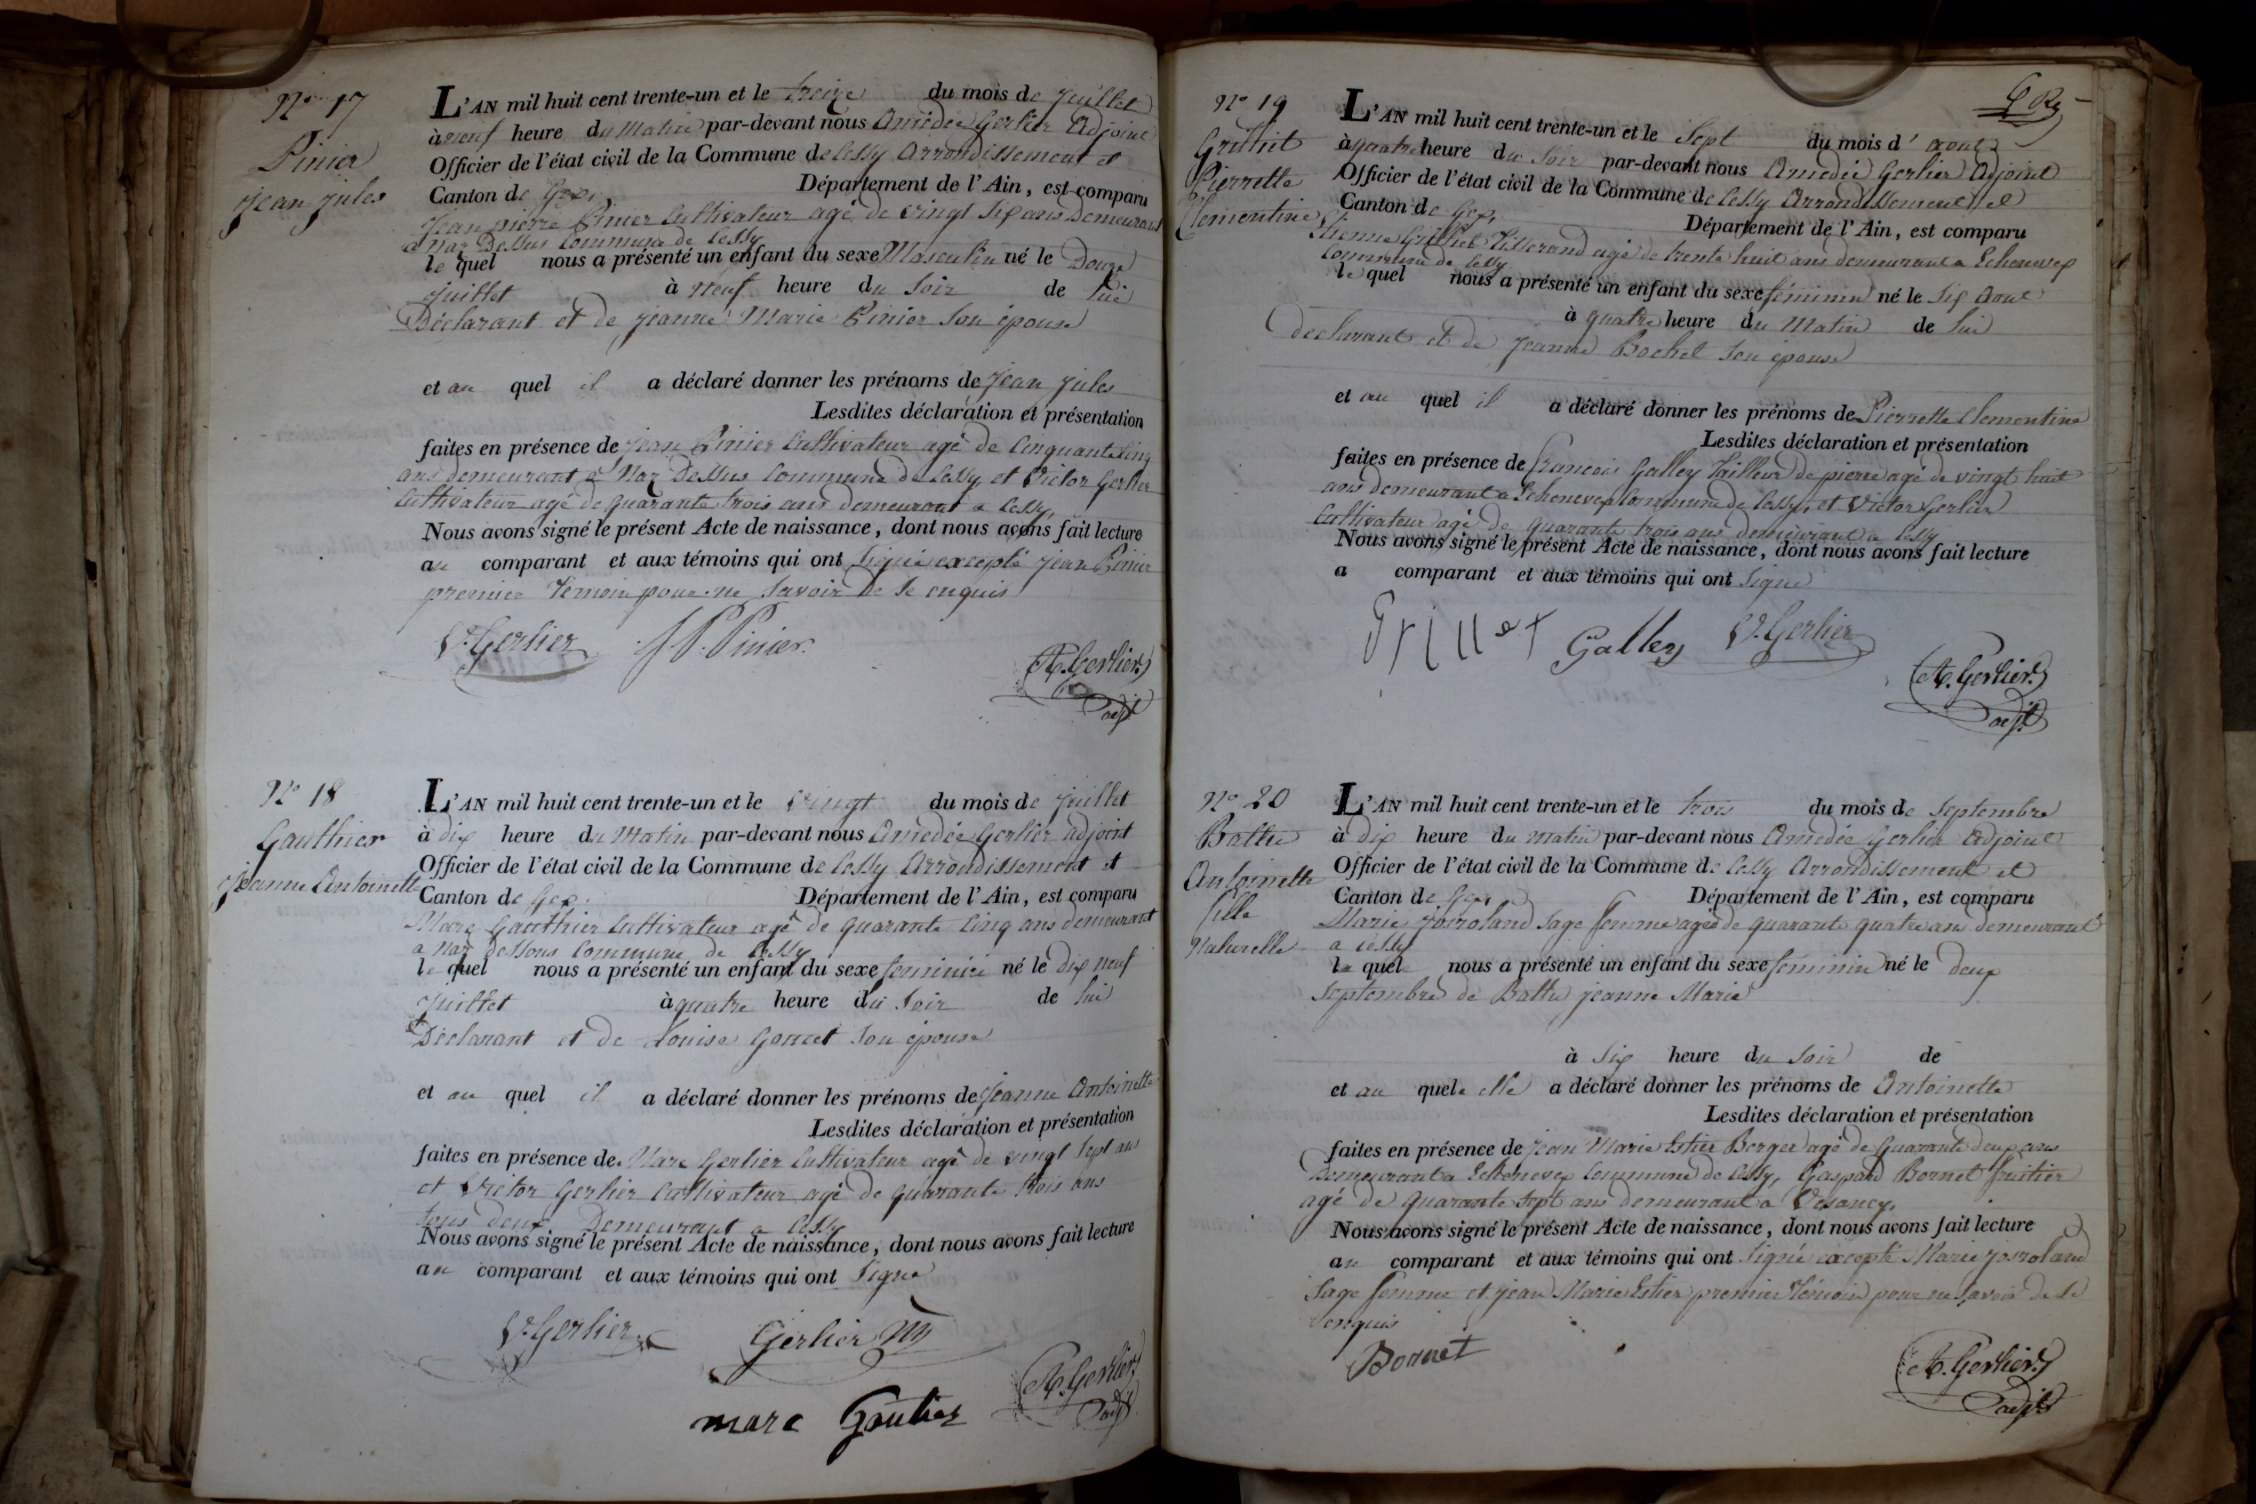 N° 17
Pinier
Jean Jules
L'AN mil huit cent trente-un et le treize du mois de Juillet
à neuf heure du Matin par-devant nous Amédée Gerlier Adjoint
Officier de l'état civil de la Commune de Cessy Arrondissement et
Canton de Gex. Département de l'Ain, est comparu
Jean pierre Pinier Cultivateur agé de vingt six ans Demeurant
a Naz Dessus Commune de Cessy
le quel nous a présenté un enfant du sexe Masculin né le Douze
Juillet à neuf heure du Soir de lui
Déclarant et de Jeanne Marie Pinier Son épouse
et au quel il a déclaré donner les prénoms de Jean Jules
Lesdites déclaration et présentation
faites en présence de Jean Pinier Cultivateur agé de Cinquante Cinq
ans demeurant a Naz Dessus Commune de Cessy et Victor Gerlier
Cultivateur agé de quarante trois ans demeurant a Cessy,
Nous avons signé le présent Acte de naissance, dont nous avons fait lecture
au comparant et aux témoins qui ont Signé excepté Jean Pinier
premier Témoin pour ne Savoir De Se enquis
V. Gerlier J. P. Pinier.
A. Gerlier
adjt
N° 18
Gauthier
Jeanne Antoinette
L'AN mil huit cent trente-un et le vingt du mois de Juillet
à dix heure du Matin par-devant nous Amédée Gerlier adjoint
Officier de l'état civil de la Commune de Cessy Arrondissement et
Canton de Gex. Département de l'Ain, est comparu
Marc Gauthier Cultivateur agé de quarante Cinq ans demeurant
a Naz Dessous Commune de Cessy
le quel nous a présenté un enfant du sexe feminin né le dix neuf
Juillet à quatre heure du Soir de lui
Déclarant et de Louise Goncet Son épouse
et au quel il a déclaré donner les prénoms de Jeanne Antoinette
Lesdites déclaration et présentation
faites en présence de Marc Gerlier Cultivateur agé de vingt Sept ans
et Victor Gerlier Cultivateur agé de quarante trois ans
tous deux Demeurant a Cessy
Nous avons signé le présent Acte de naissance, dont nous avons fait lecture
au comparant et aux témoins qui ont Signé
V. Gerlier Gerlier
A. Gerlier
adjt
marc Goutier
N° 19
Grillet
Pierrette
Clementine
L'AN mil huit cent trente-un et le Sept du mois d' aout
à quatre heure du Soir par-devant nous Amédée Gerlier Adjoint
Officier de l'état civil de la Commune de Cessy Arrondissement et
Canton de Gex, Département de l'Ain, est comparu
Etienne Grillet Tisserand agé de trente huit ans demeurant a Echenevex
Commune de Cessy
le quel nous a présenté un enfant du sexe féminin né le Six Aout
à quatre heure du Matin de lui
declarant et de Jeanne Bochet Son épouse
et au quel il a déclaré donner les prénoms de Pierrette Clementine
Lesdites déclaration et présentation
faites en présence de francois Galley Tailleur de pierre agé de vingt huit
ans demeurant a Echenevex Commune de Cessy, et Victor Gerlier
Cultivateur agé de quarante trois ans demeurant a Cessy
Nous avons signé le présent Acte de naissance, dont nous avons fait lecture
a comparant et aux témoins qui ont Signé
Grillet Galley V. Gerlier
A. Gerlier
adjt
N° 20
Battu
Antoinette
fille
Naturelle
L'AN mil huit cent trente-un et le trois du mois de Septembre
à dix heure du matin par-devant nous Amédée Gerlier Adjoint
Officier de l'état civil de la Commune de Cessy Arrondissement et
Canton de Gex, Département de l'Ain, est comparu
Marie Josroland Sage femme agée de quarante quatre ans demeurant
a Cessy
la quel nous a présenté un enfant du sexe féminin né le deux
Septembre de Battu Jeanne Marie
à Six heure du Soir de
et au quel elle a déclaré donner les prénoms de Antoinette
Lesdites déclaration et présentation
faites en présence de Jean Marie Estier Berger agé de quarante deux ans
Demeurant a Echenevex Commune de Cessy, Gaspard Bornet fruitier
agé de quarante Sept ans demeurant a Vesancy.
Nous avons signé le présent Acte de naissance, dont nous avons fait lecture
au comparant et aux témoins qui ont Signé excepté Marie Josroland
Sage femme et Jean Marie Estier premier Témoin pour ne Savoir de Se
enquis
Bornet
A. Gerlier
adjt